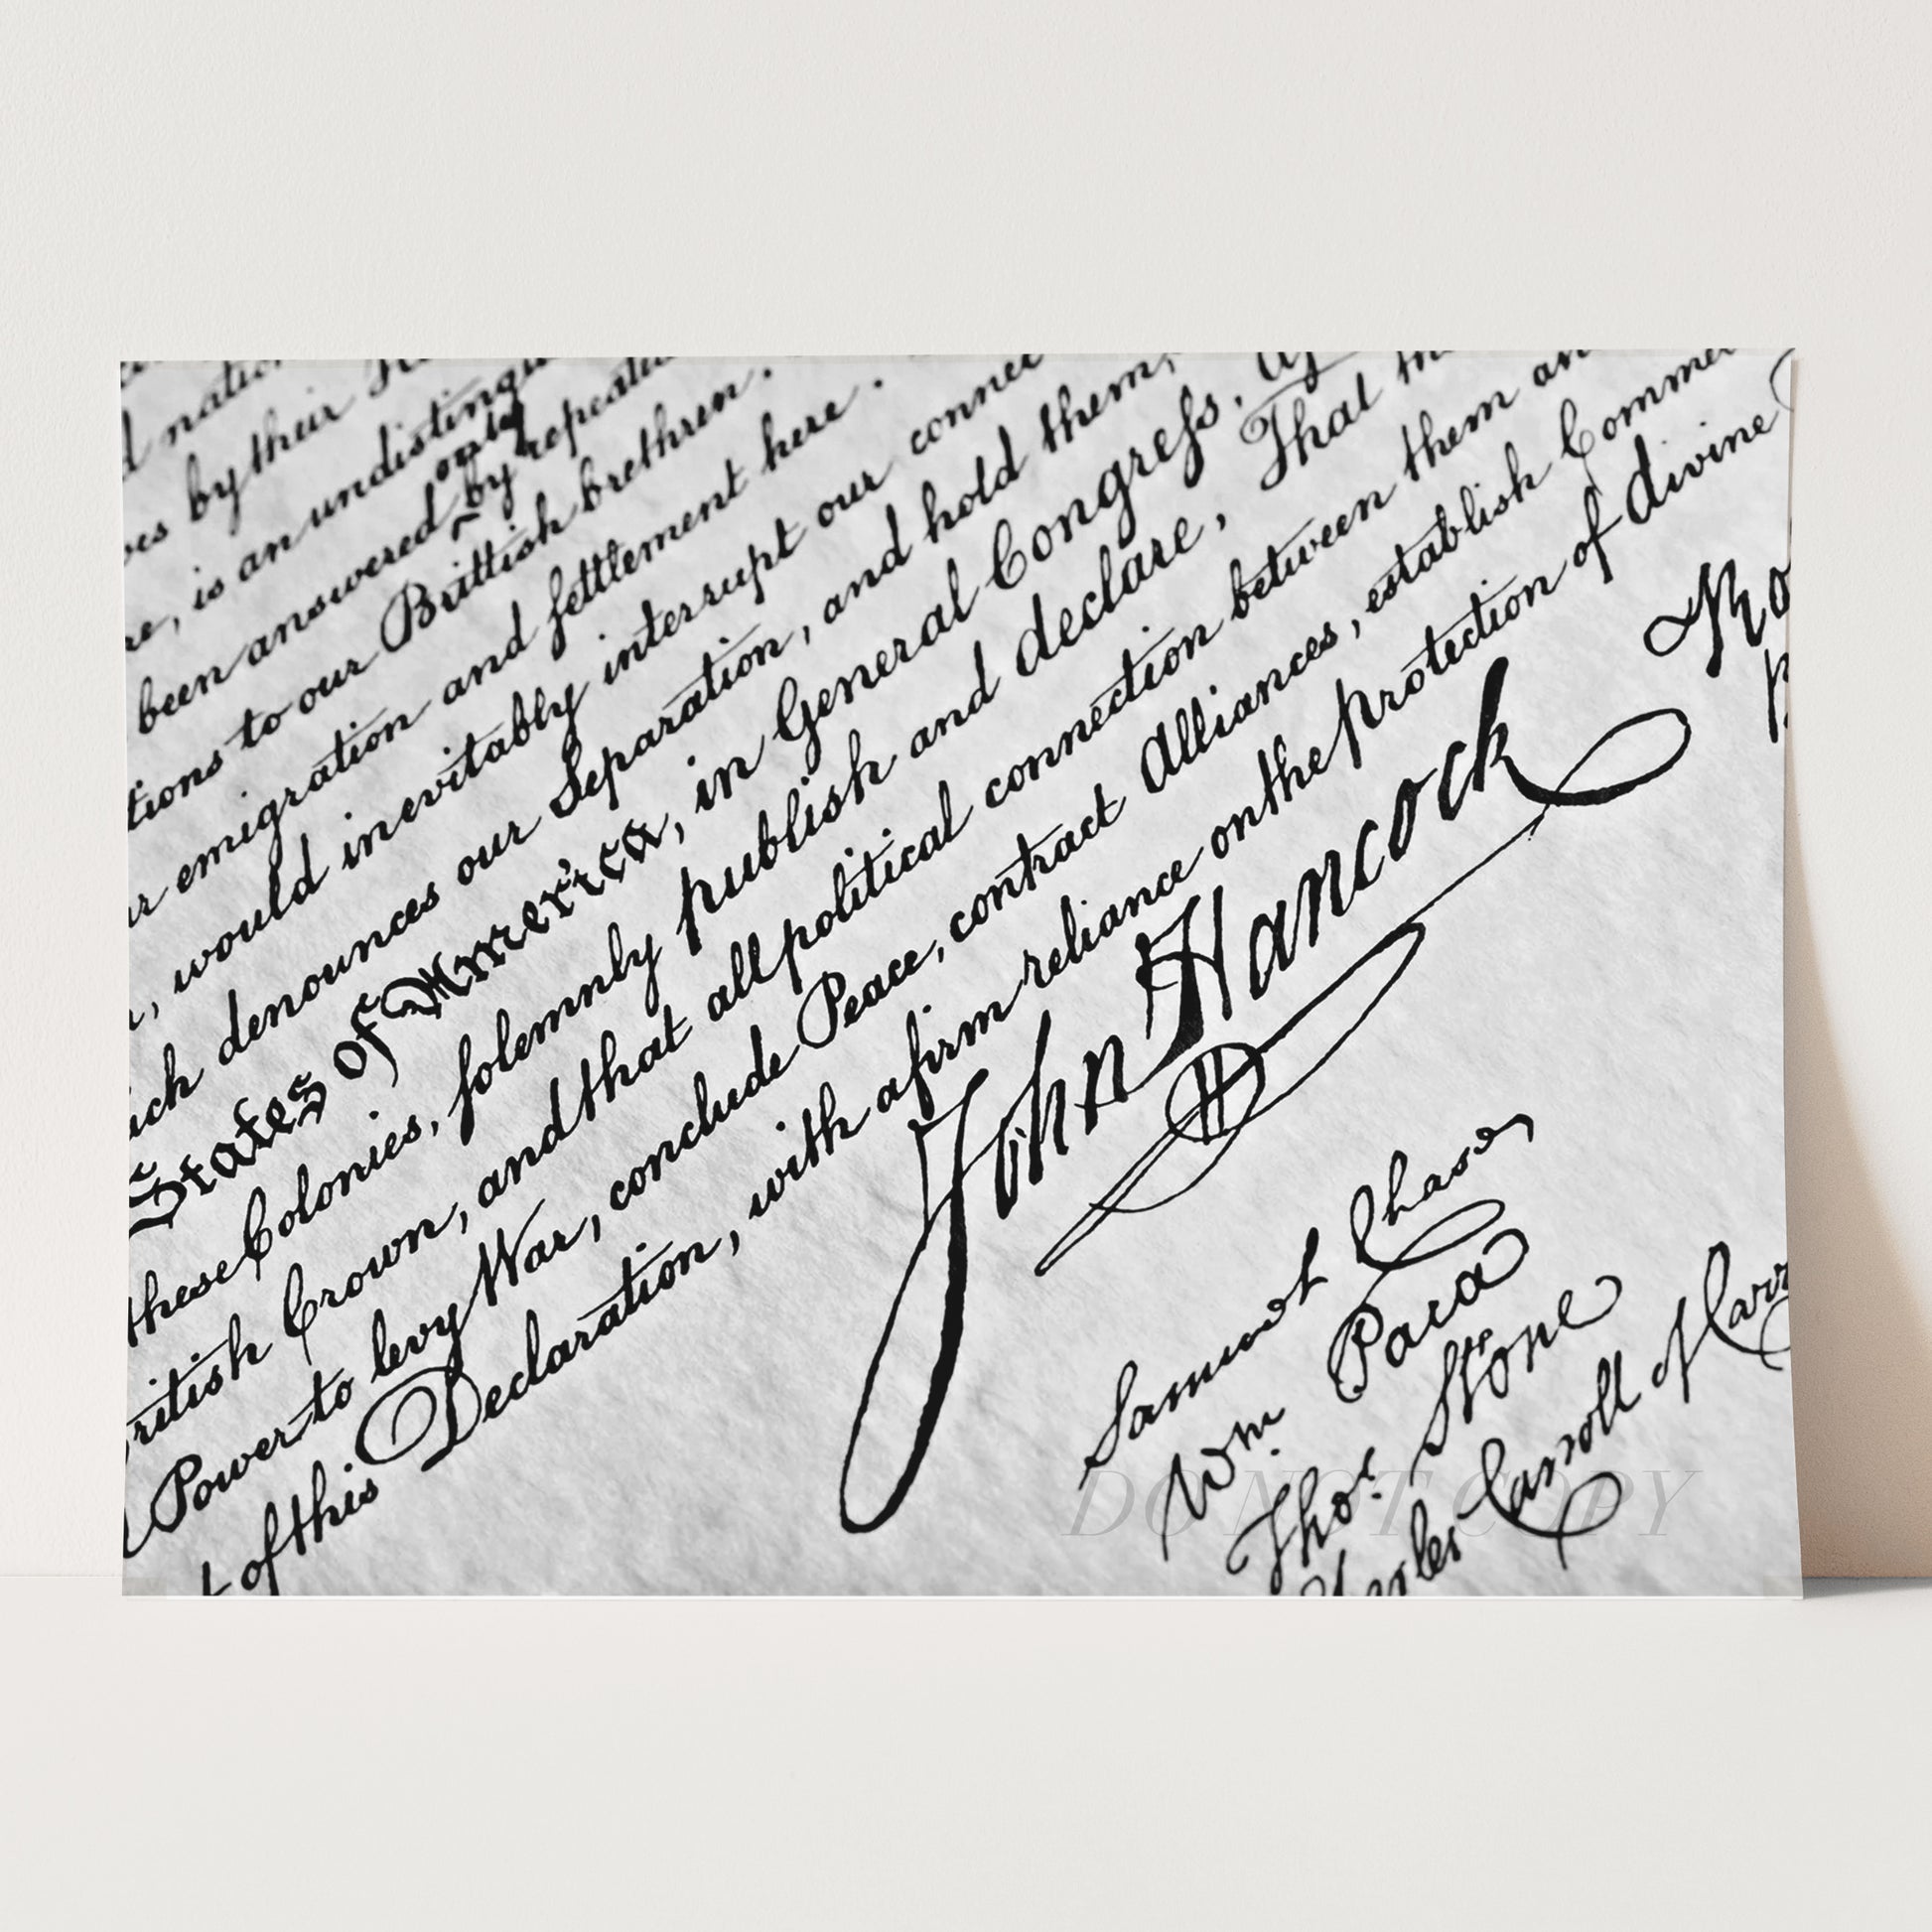 d natio
es by their
re, is an undistingu
been answered only by repeated
tions to our Brittish brethren.
r emigration and settlement here.
, would inevitably interrupt our connec
ich denounces our Separation, and hold them,
States of America, in General Congress,
these Colonies, solemnly publish and declare, That th
ritish Crown, and that all political connection between them an
Power to levy War, conclude Peace, contract Alliances, establish Comme
t of this Declaration, with a firm reliance on the protection of divine
John Hancock
Samuel Chase
Wm. Paca
Thos. Stone
Charles Carroll of Carr
DO NOT COPY